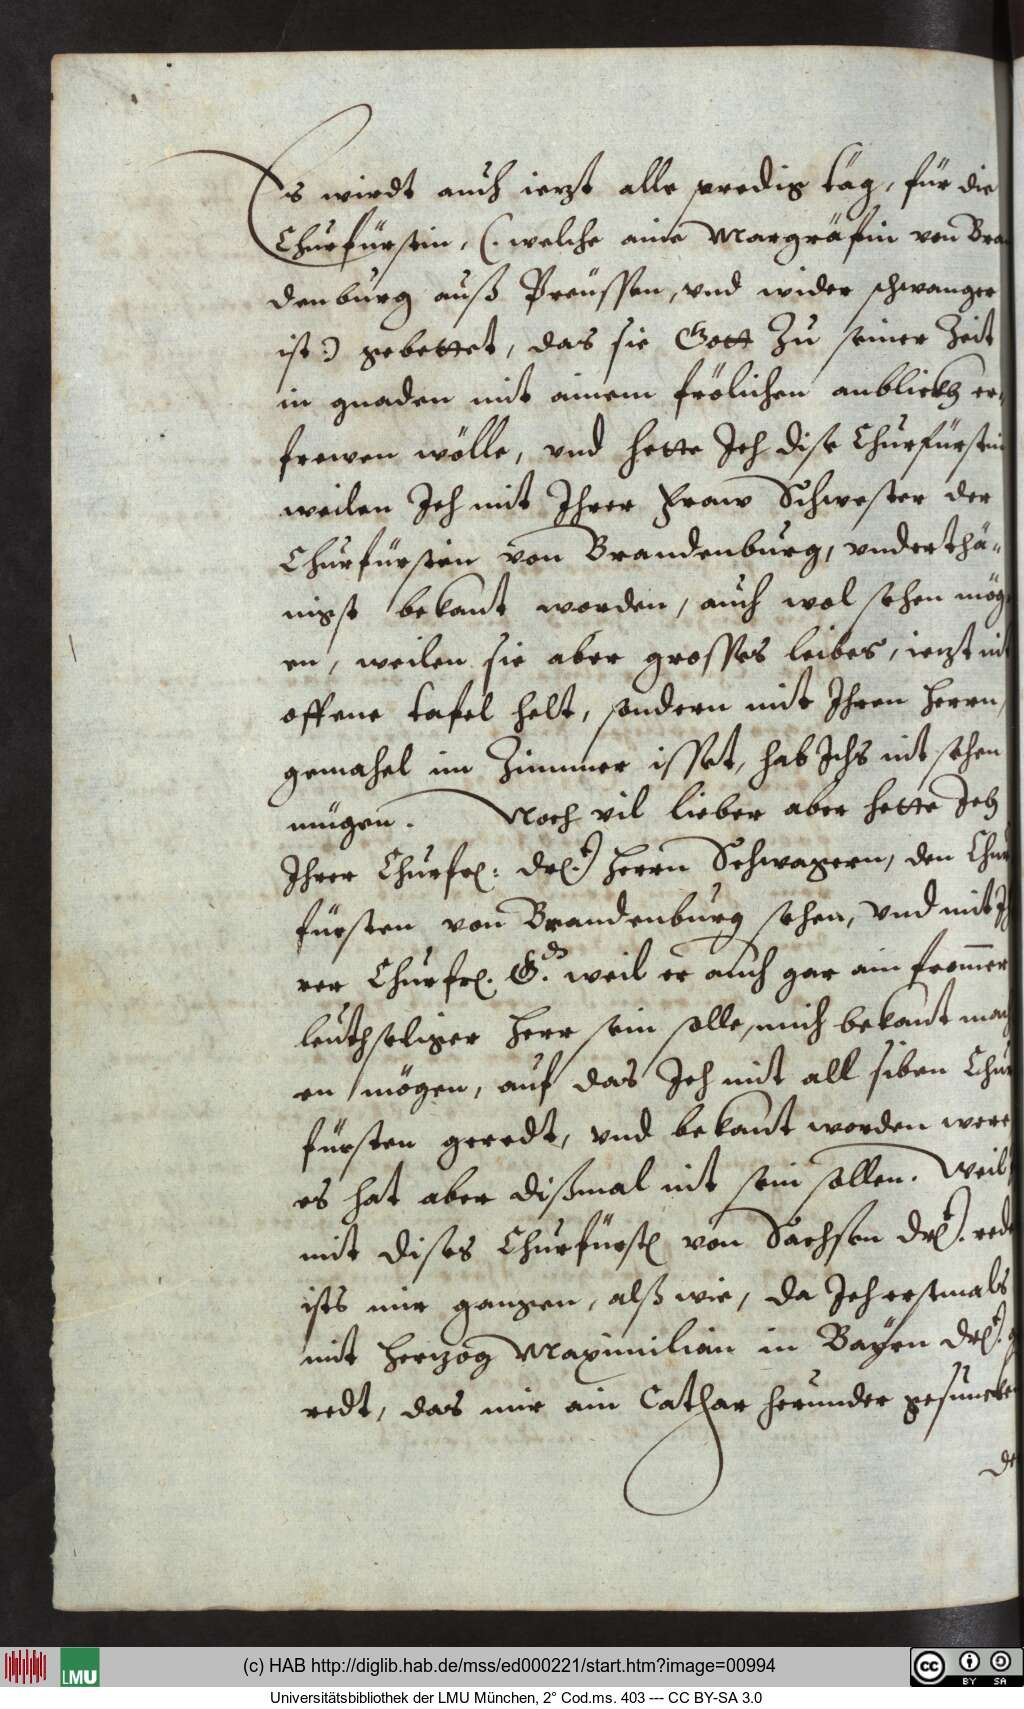 Es wirdt auch iezt alle predig täg, für die
Churfürstin, (. welche aine Margräfin von Bran
denburg auß Preüssen, vnd wider schwanger
ist :) gebettet, das sie Gott Zu seiner Zeit
in gnaden mit ainem frölichen anblickh er,
frewen wölle, vnd hette Ich dise Churfürstin
weilen Ich mit Ihrer Fraw Schwester der
Churfürstin von Brandenburg, vnderthä=
nigst bekant worden, auch wol sehen mög
en, weilen sie aber grosses leibes, iezt nit
offene tafel helt, sondern mit Ihren herrn,
gemahel im Zimmer isset, hab Ichs nit sehen
mügen. Noch vil lieber aber hette Ich
Ihrer Churfr: Dr: herrn Schwagern, den Chur
fürsten von Brandenburg sehen, Vnd mit Ih
rer Churfr. G. weil er auch gar ain fromer
leüthseliger herr sein solle, mich bekant mach
en mögen, auf das Ich mit all siben Chur
fürsten geredt, vnd bekant worden were
es hat aber dißmal nit sein sollen. Weil
mit dises Churfürst von Sachsen Dr. rede
ists mir gangen, alß wie, da Ich erstmals
mit herzog Maximilian in Bayrn Dr. g
redt, das mir ain Cathar herunder gesuncke
(c) HAB http://diglib.hab.de/mss/ed000221/start.htm?image=00994
LMU
cc BY SA
Universitätsbibliothek der LMU München, 2° Cod.ms. 403 --- CC BY-SA 3.0